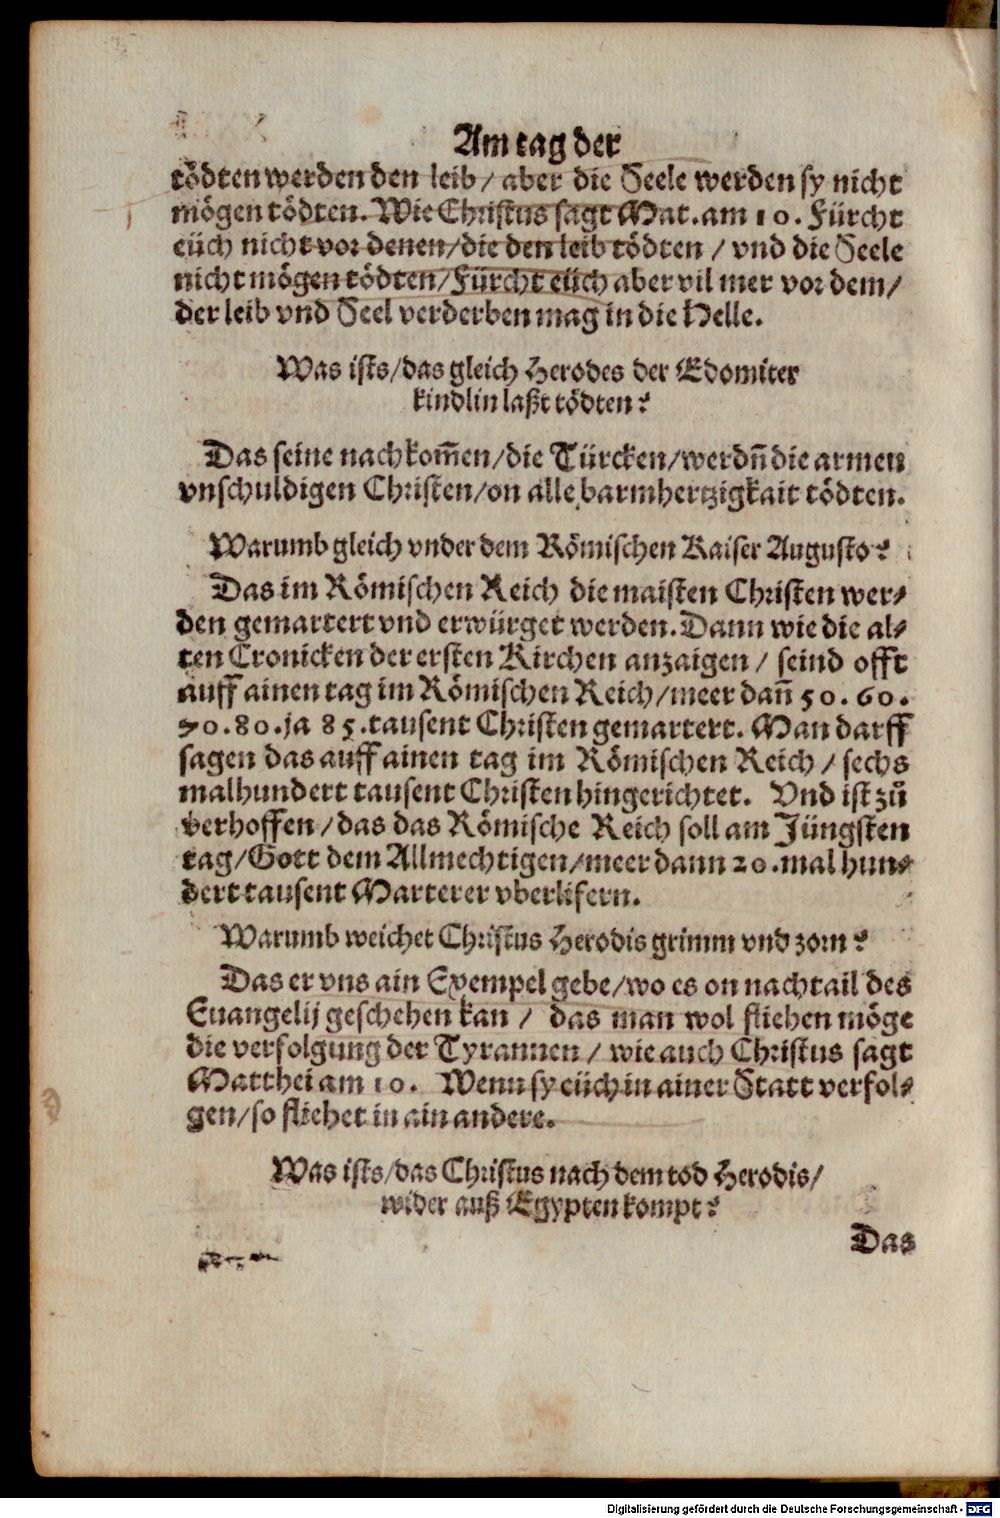 Am tag der
tödten werden den leib / aber die Seele werden sy nicht
mögen tödten. Wie Christus sagt Mat. am 10. Fürcht
eüch nicht vor denen / die den leib tödten / vnd die Seele
nicht mögen tödten / Fürcht eüch aber vil mer vor dem /
der leib vnd Seel verderben mag in die Helle.
Was ists / das gleich Herodes der Edomiter
kindlin laßt tödten?
Das seine nachkom̃en / die Türcken / werdn̄ die armen
vnschuldigen Christen / on alle barmhertzigkait tödten.
Warumb gleich vnder dem Römischen Kaiser Augusto?
Das im Römischen Reich die maisten Christen wer⸗
den gemartert vnd erwürget werden. Dann wie die al⸗
ten Cronicken der ersten Kirchen anzaigen / seind offt
auff ainen tag im Römischen Reich / meer dan̄ 50. 60.
70. 80. ja 85. tausent Christen gemartert. Man darff
sagen das auff ainen tag im Römischen Reich / sechs
malhundert tausent Christen hingerichtet. Vnd ist zů
verhoffen / das das Römische Reich soll am Jüngsten
tag / Gott dem Allmechtigen / meer dann 20. mal hun⸗
dert tausent Marterer vberlifern.
Warumb weichet Christus Herodis grimm vnd zorn?
Das er vns ain Exempel gebe / wo es on nachtail des
Euangelij geschehen kan / das man wol fliehen möge
die verfolgung der Tyrannen / wie auch Christus sagt
Matthei am 10. Wenn sy eüch in ainer Statt verfol⸗
gen / so fliehet in ain andere.
Was ists / das Christus nach dem tod Herodis /
wider auß Egypten kompt?
Das
Digitalisierung gefördert durch die Deutsche Forschungsgemeinschaft - DFG